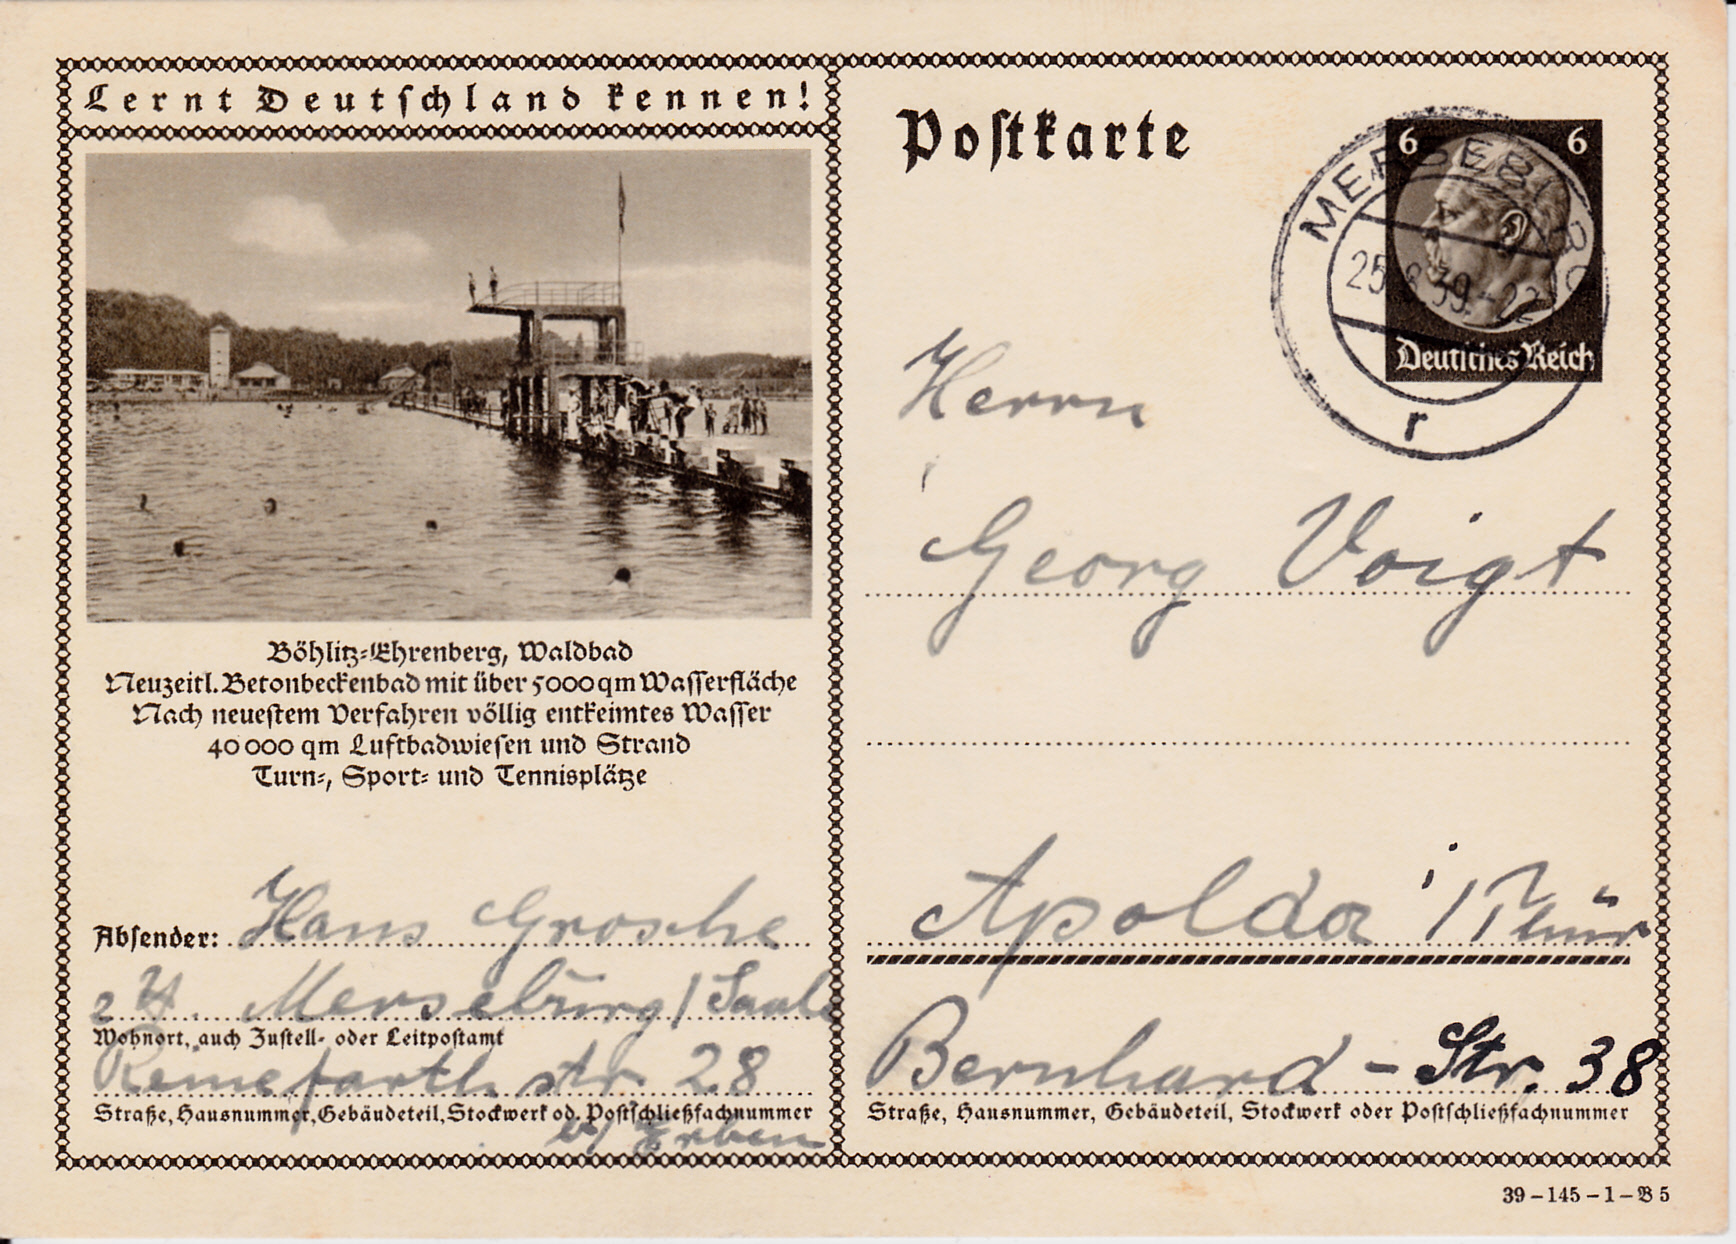 Lernt Deutschland kennen!
Böhlitz-Ehrenberg, Waldbad
Neuzeitl. Betonbeckenbad mit über 5000 qm Wasserfläche
Nach neuestem Verfahren völlig entkeimtes Wasser
40 000 qm Luftbadwiesen und Strand
Turn-, Sport- und Tennisplätze
Absender: Hans Grosche
z.Zt. Merseburg / Saale
Wohnort, auch Zustell- oder Leitpostamt
Reinefarth str. 28
Straße, Hausnummer, Gebäudeteil, Stockwerk od. Postschließfachnummer
b/ Erben
Postkarte
6 6
Deutsches Reich
MERSEBURG
25. 8. 39.-22
r
Herrn
Georg Voigt
Apolda i / Thür
Bernhard - Str. 38
Straße, Hausnummer, Gebäudeteil, Stockwerk oder Postschließfachnummer
39 – 145 – 1 – B 5